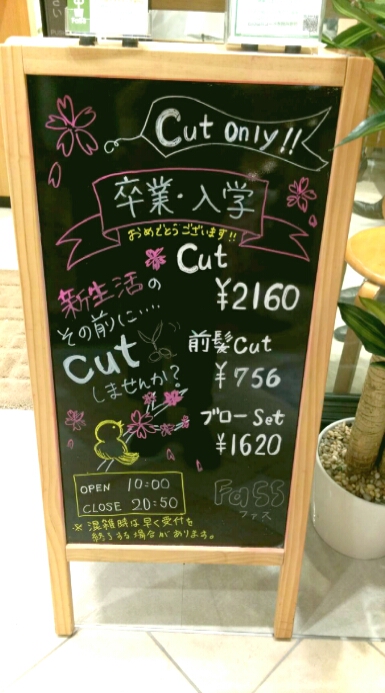 Cut only!!
卒業・入学
おめでとうございます!!
Cut
¥2160
新生活の
その前に‥‥
cut
しませんか?
前髪Cut
¥756
ブローSet
¥1620
OPEN 10:00
CLOSE 20:50
Fass
ファス
※混雑時は早く受付を
終了する場合があります。